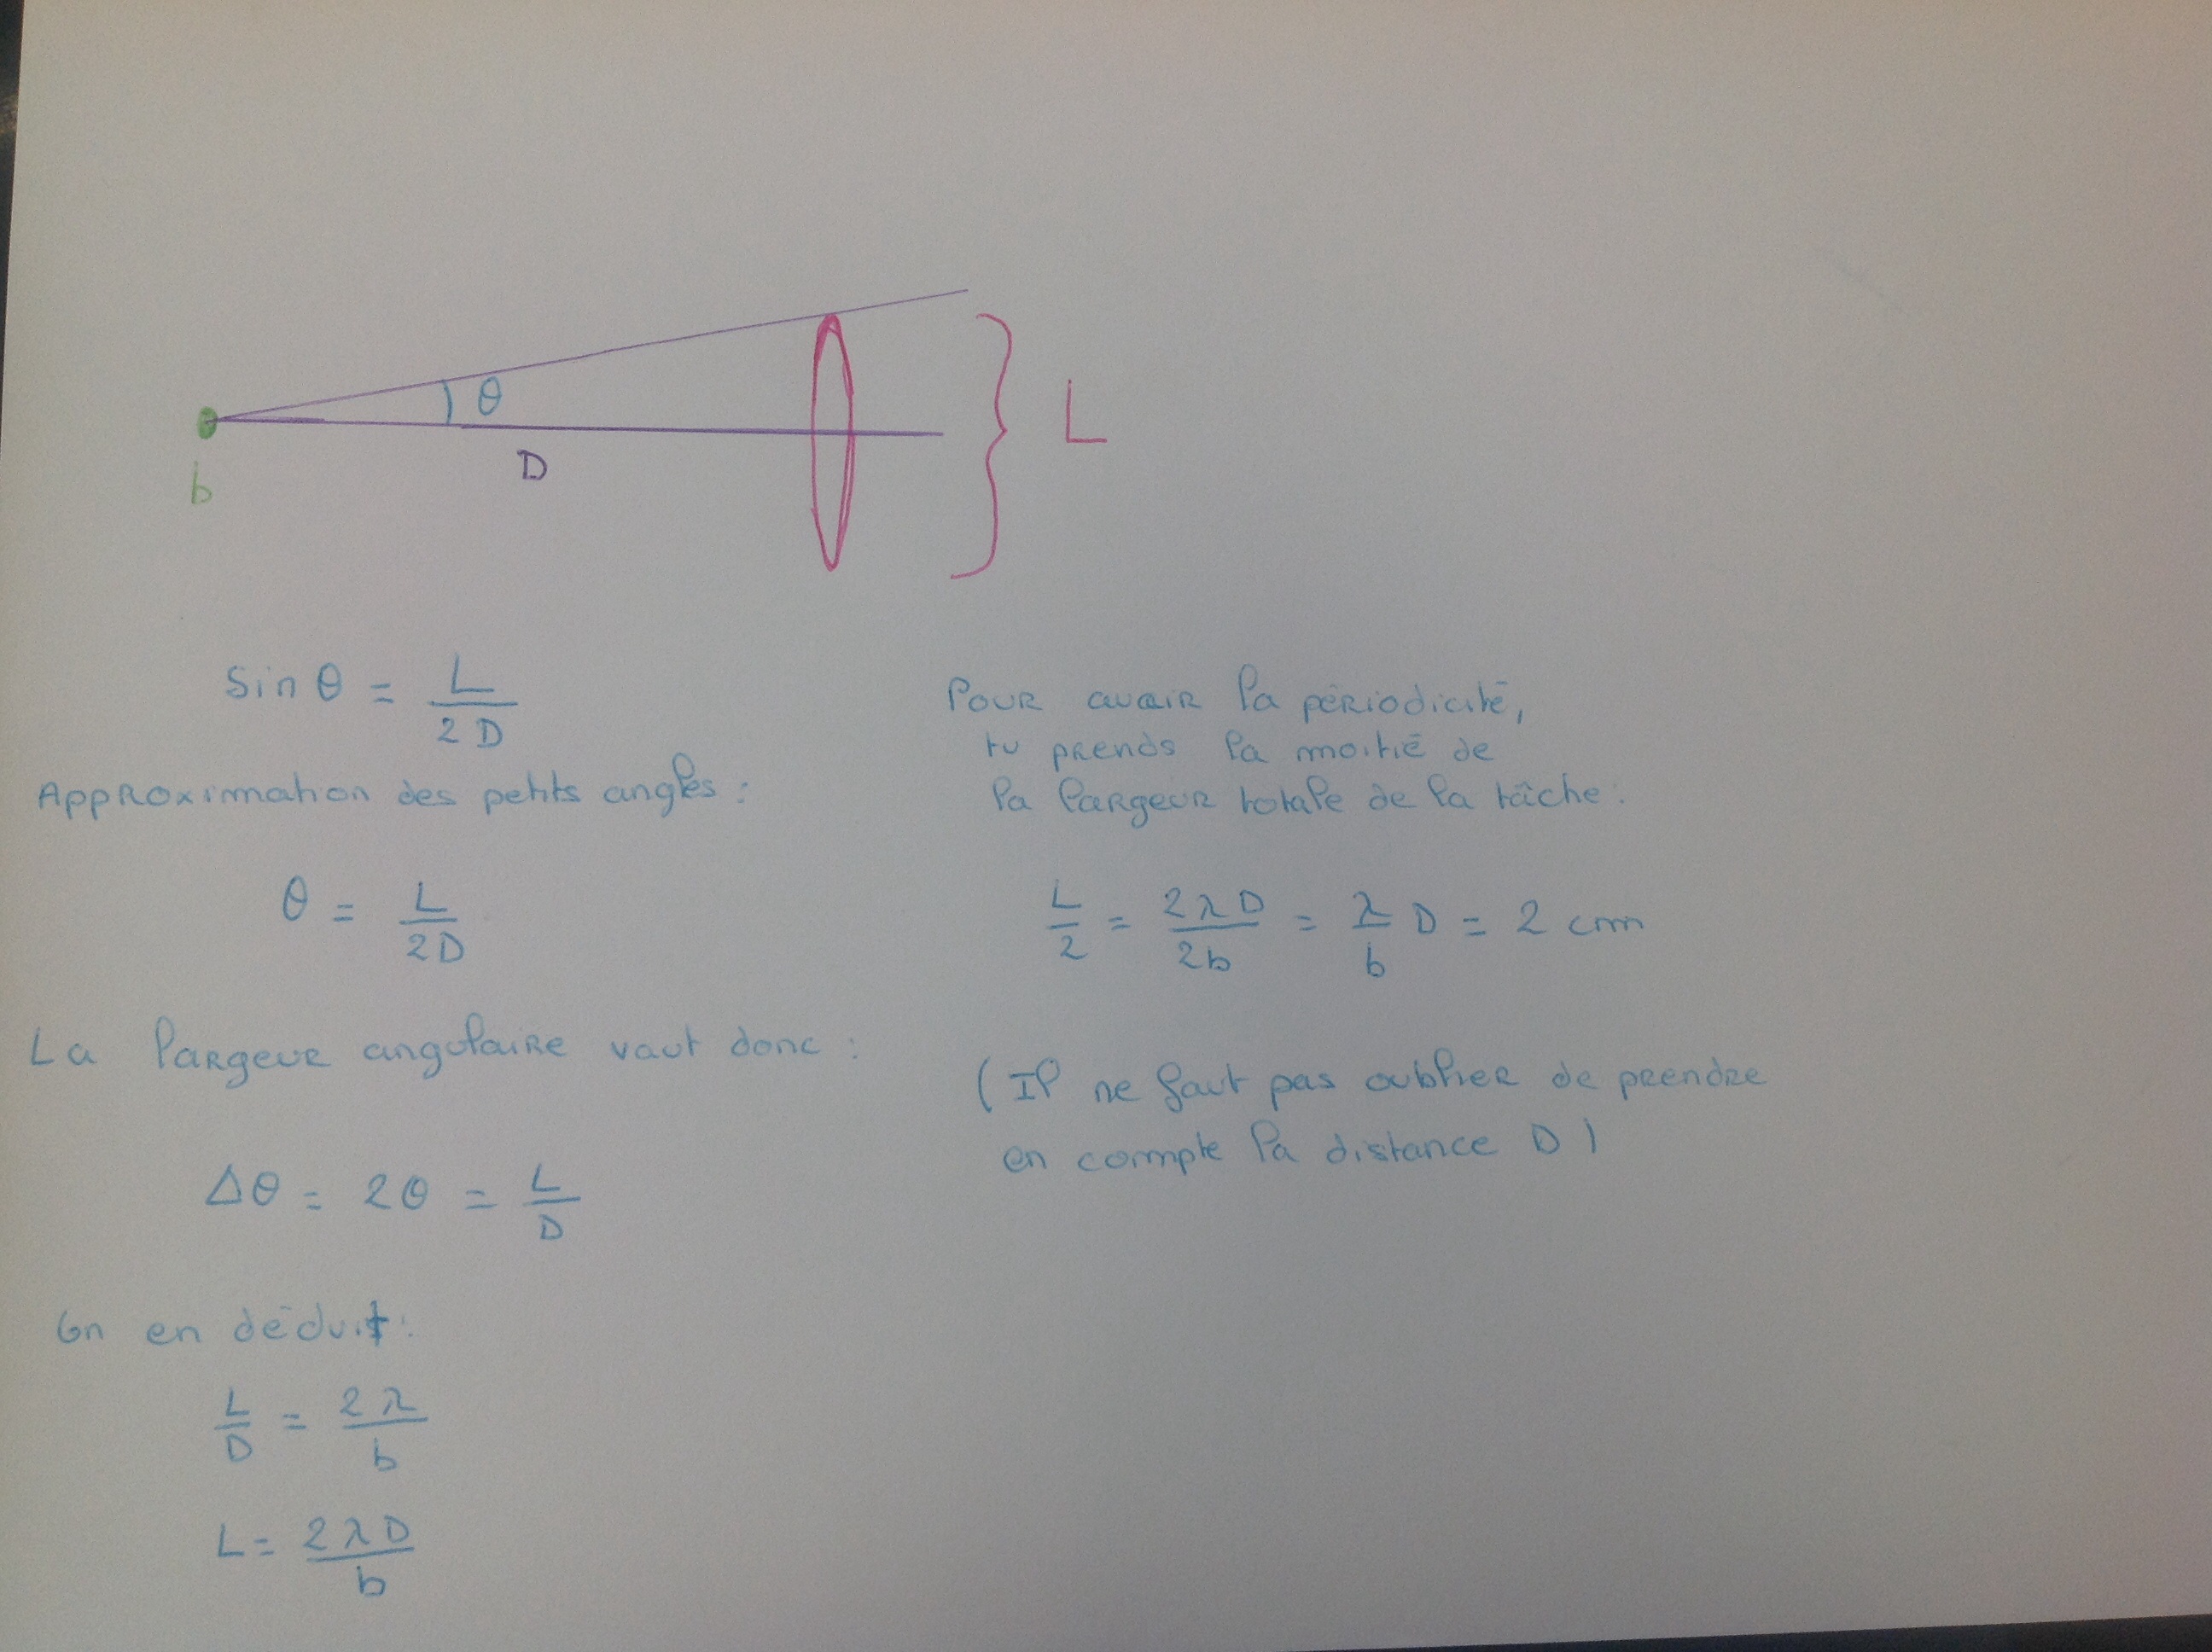 θ
L
D
b
sin θ = L / 2D
Approximation des petits angles :
θ = L / 2D
La largeur angulaire vaut donc :
Δθ = 2θ = L / D
On en déduit :
L / D = 2λ / b
L = 2λD / b
Pour avoir la périodicité,
tu prends la moitié de
la largeur totale de la tâche :
L / 2 = 2λD / 2b = λ / b D = 2 cm
(Il ne faut pas oublier de prendre
en compte la distance D)